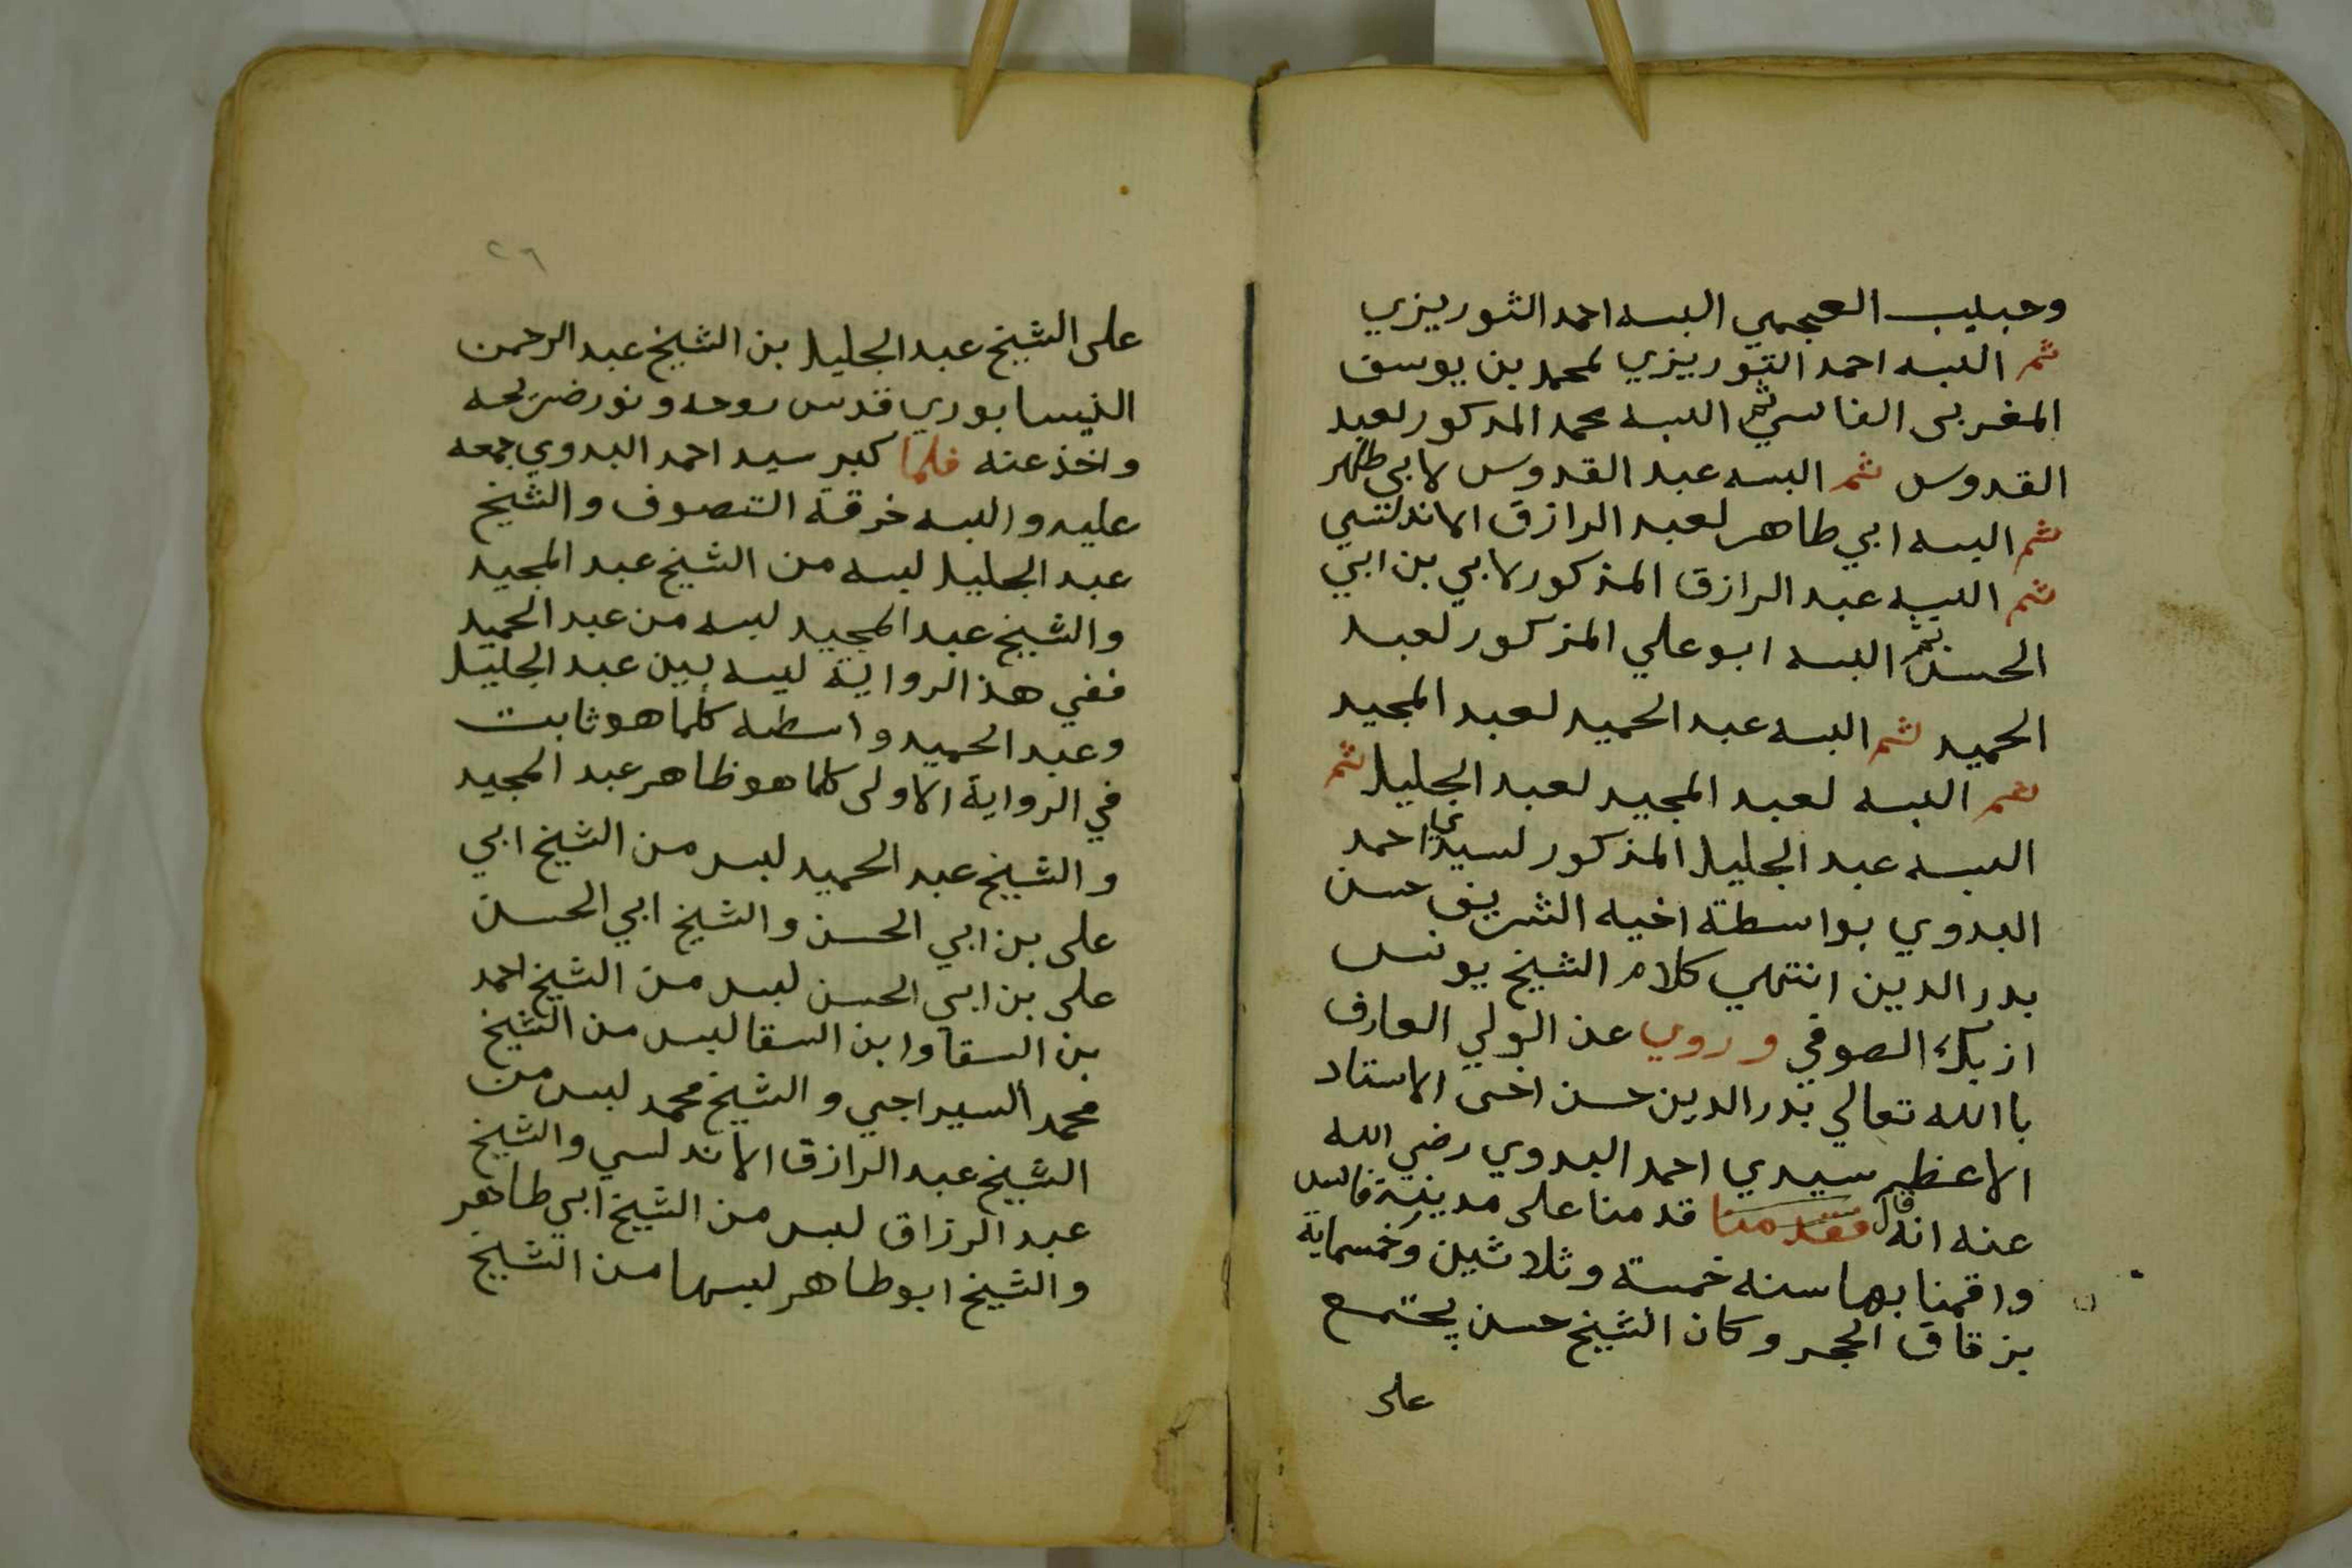 وحبيب العجمي البسه احمد التوريزي
ثم البسه احمد التوريزي لمحمد بن يوسف
المغربى الفاسي ثم البسه محمد المدكور لعبد
القدوس ثم البسه عبد القدوس لابي طاهر
ثم البسه ابي طاهر لعبد الرازق الاندلسي
ثم البسه عبد الرازق المذكور لابي بن ابي
الحسن ثم البسه ابو علي المذكور لعبد
الحميد ثم البسه عبد الحميد لعبد المجيد
ثم البسه لعبد المجيد لعبد الجليل ثم
البسه عبد الجليل المذكور لسيدي احمد
البدوي بواسطة اخيه الشريف حسن
بدر الدين انتهي كلام الشيخ يونس
ازبك الصوفي وروي عن الولي العارف
با الله تعالي بدر الدين حسن اخى الاستاد
الاعظم سيدي احمد البدوي رضي الله
عنه انه قال فقدمنا قدمنا على مدينة فاس
واقمنا بها سنه خمسة وثلاثين وخمسماية
بزقاق الحجر وكان الشيخ حسن يجتمع
على
٢٦
على الشيخ عبد الجليل بن الشيخ عبد الرحمن
النيسابوري قدس روحه ونور ضريحه
واخذ عنه فلما كبر سيد احمد البدوي جمعه
عليه والبسه خرقة التصوف والشيخ
عبد الجليل لبسه من الشيخ عبد المجيد
والشيخ عبد المجيد لبسه من عبد الحميد
ففي هذا الرواية ليسه بين عبد الجليل
وعبد الحميد واسطه كلما هو ثابت
في الرواية الاولى كلما هو ظاهر عبد المجيد
والشيخ عبد الحميد لبس من الشيخ ابي
على بن ابي الحسن والشيخ ابي الحسن
على بن ابي الحسن لبس من الشيخ احمد
بن السقا وابن السقا لبس من الشيخ
محمد السيراجي والشيخ محمد لبس من
الشيخ عبد الرازق الاندلسي والشيخ
عبد الرزاق لبس من الشيخ ابي طاهر
والشيخ ابو طاهر لبسها من الشيخ